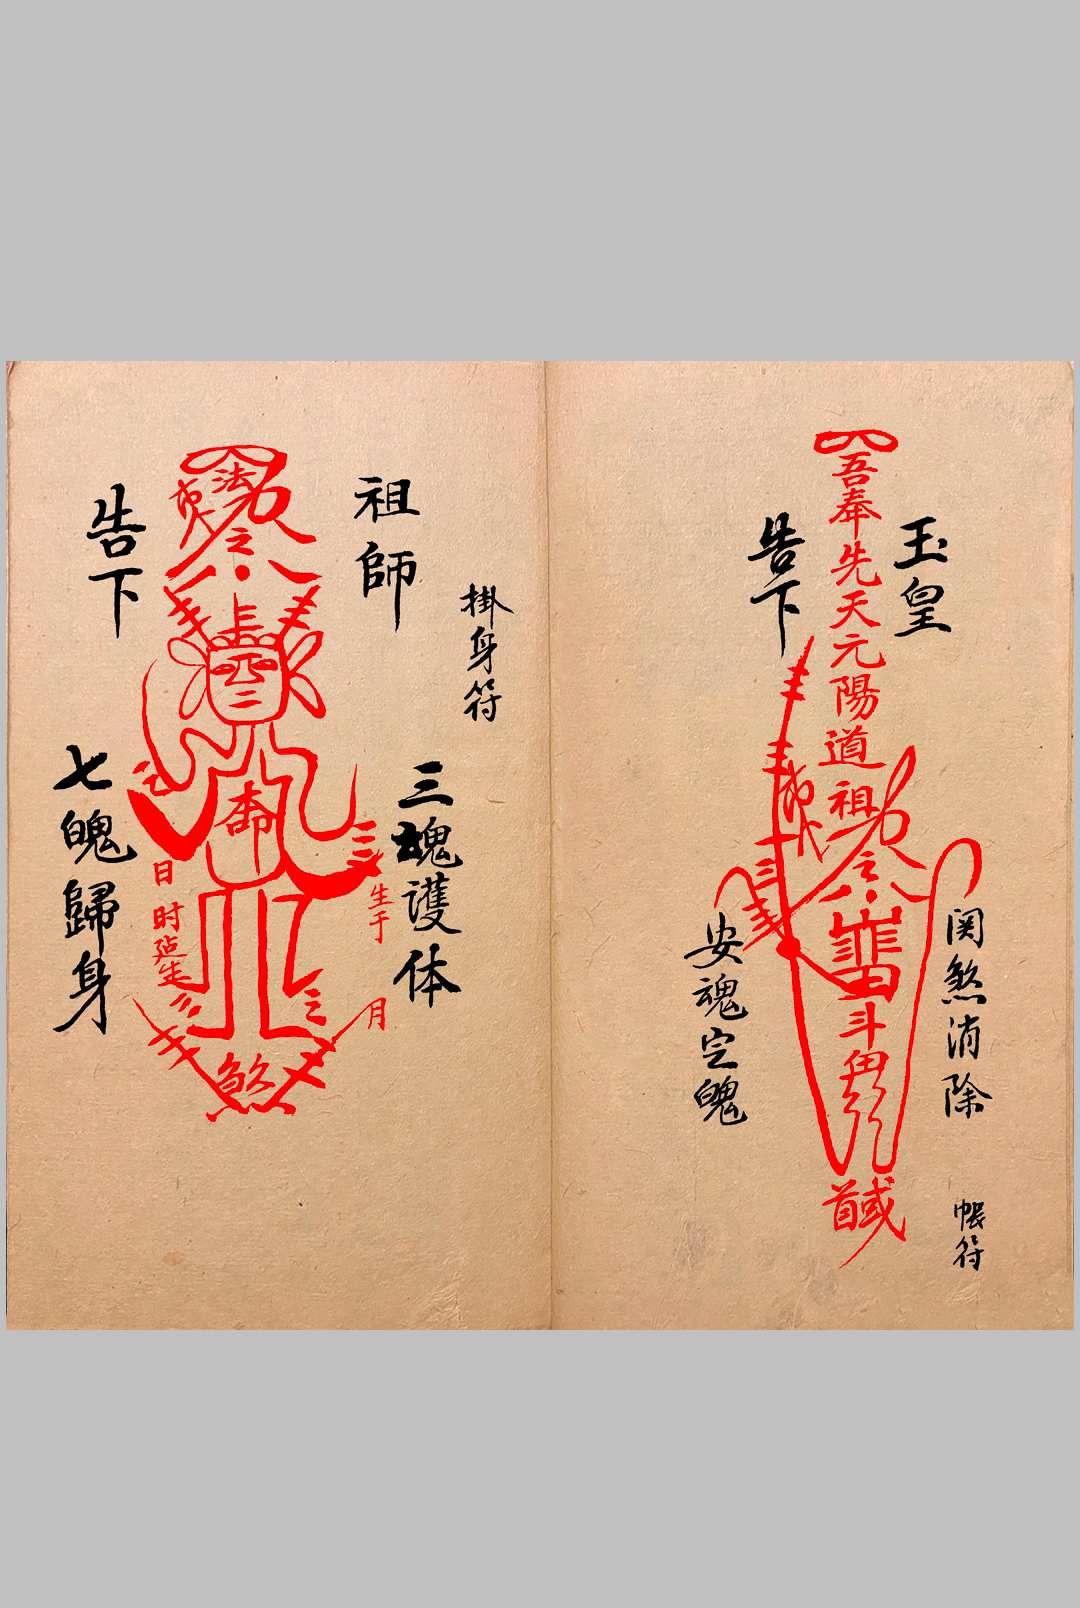 玉皇
告下
吾奉先天元陽道祖
令
斗
関煞消除
安魂定魄
帳符
掛身符
祖師
告下
法
令
三魂護体
七魄歸身
本命
生于
月
日
时
煞